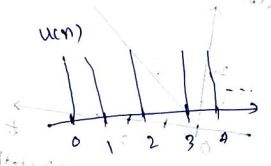 u(n)
0 1 2 3 4 ---